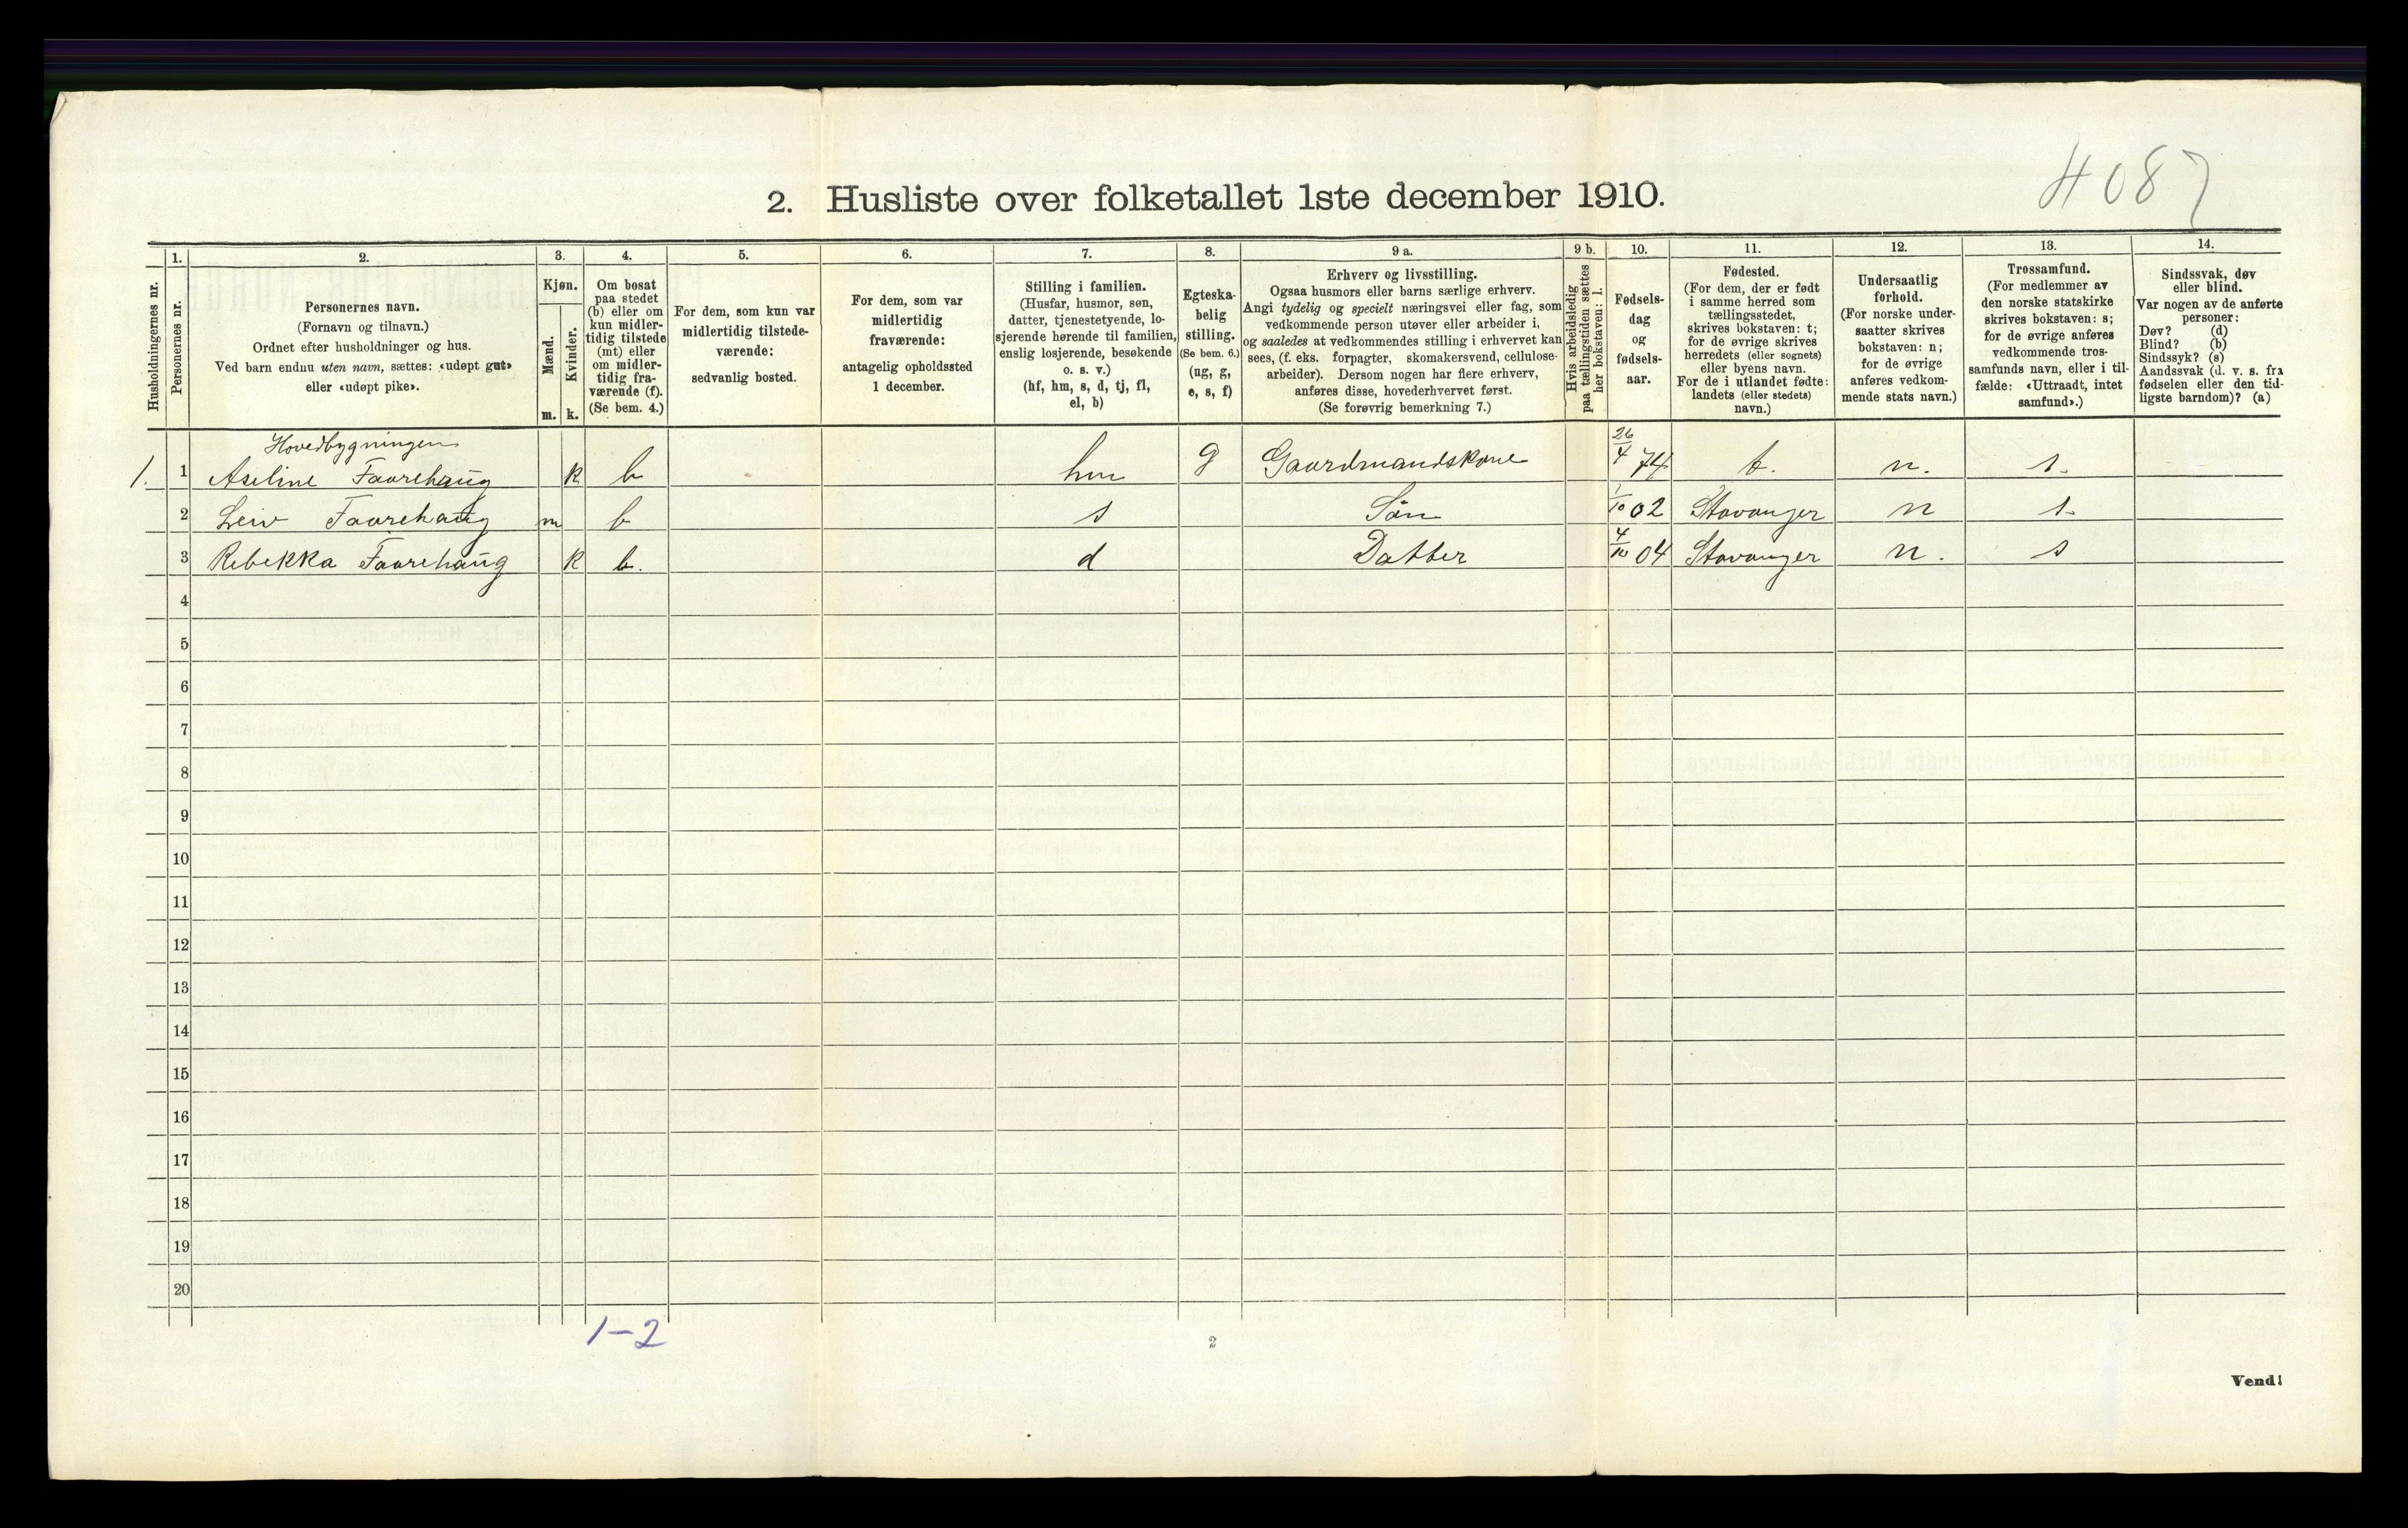 4087
2. Husliste over folketallet 1ste december 1910.
Husholdningernes nr.
1.
Personernes nr.
2.
Personernes navn.
(Fornavn og tilnavn.)
Ordnet efter husholdninger og hus.
Ved barn endnu uten navn, sættes: «udøpt gut»
eller «udøpt pike».
3.
Kjøn.
Mænd.
m.
Kvinder.
k.
4.
Om bosat
paa stedet
(b) eller om
kun midler-
tidig tilstede
(mt) eller
om midler-
tidig fra-
værende (f).
(Se bem. 4.)
5.
For dem, som kun var
midlertidig tilstede-
værende:
sedvanlig bosted.
6.
For dem, som var
midlertidig
fraværende:
antagelig opholdssted
1 december.
7.
Stilling i familien.
(Husfar, husmor, søn,
datter, tjenestetyende, lo-
sjerende hørende til familien,
enslig losjerende, besøkende
o. s. v.)
(hf, hm, s, d, tj, fl,
el, b)
8.
Egteska-
belig
stilling.
(Se bem. 6.)
(ug, g,
e, s, f)
9 a.
Erhverv og livsstilling.
Ogsaa husmors eller barns særlige erhverv.
Angi tydelig og specielt næringsvei eller fag, som
vedkommende person utøver eller arbeider i,
og saaledes at vedkommendes stilling i erhvervet kan
sees, (f. eks. forpagter, skomakersvend, cellulose-
arbeider). Dersom nogen har flere erhverv,
anføres disse, hovederhvervet først.
(Se forøvrig bemerkning 7.)
9 b.
Hvis arbeidsledig
paa tællingstiden sættes
her bokstaven: l.
10.
Fødsels-
dag
og
fødsels-
aar.
11.
Fødested.
(For dem, der er født
i samme herred som
tællingsstedet,
skrives bokstaven: t;
for de øvrige skrives
herredets (eller sognets)
eller byens navn.
For de i utlandet fødte:
landets (eller stedets)
navn.)
12.
Undersaatlig
forhold.
(For norske under-
saatter skrives
bokstaven: n;
for de øvrige
anføres vedkom-
mende stats navn.)
13.
Trossamfund.
(For medlemmer av
den norske statskirke
skrives bokstaven: s;
for de øvrige anføres
vedkommende tros-
samfunds navn, eller i til-
fælde: «Uttraadt, intet
samfund».)
14.
Sindssvak, døv
eller blind.
Var nogen av de anførte
personer:
Døv? (d)
Blind? (b)
Sindssyk? (s)
Aandssvak (d. v. s. fra
fødselen eller den tid-
ligste barndom)? (a)
Hovedbygningen
1. 1 Aseline Faarehaug k b hm g Gaardmandskone 26/4 74 t. n. s.
2 Leiv Faarehaug m b s Søn 1/10 02 Stavanger n s.
3 Rebekka Faarehaug k b. d Datter 4/10 04 Stavanger n. s
4
5
6
7
8
9
10
11
12
13
14
15
16
17
18
19
20
1-2
2
Vend!